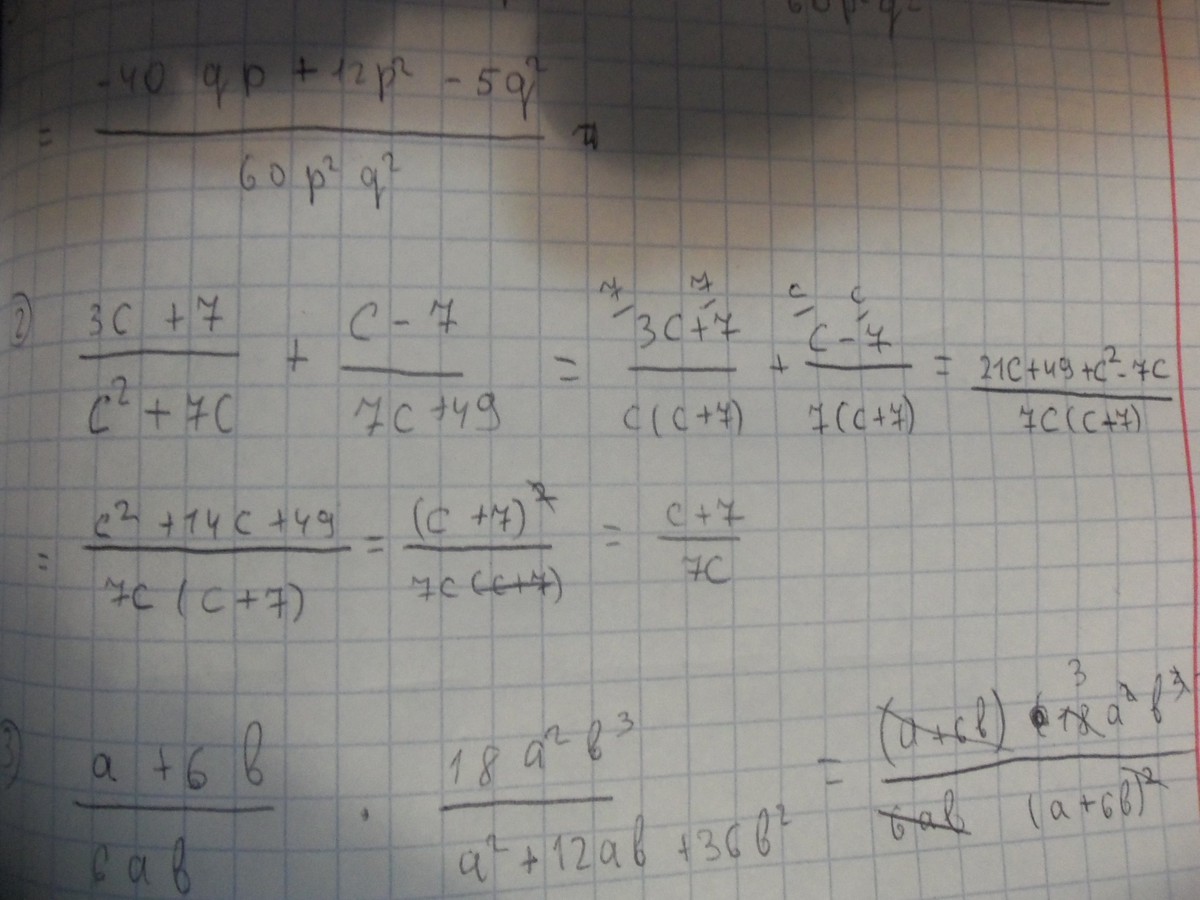 60p²q²
= (-40qp + 12p² - 5q²) / (60p²q²)
2) (3c + 7) / (c² + 7c) + (c - 7) / (7c + 49) = 7 (3c + 7) 7 / (c(c+7)) + c (c - 7) c / (7(c+7)) = (21c + 49 + c² - 7c) / (7c(c+7))
= (c² + 14c + 49) / (7c(c+7)) = (c+7)² / (7c(c+7)) = (c+7) / (7c)
3) (a + 6b) / (6ab) · (18a²b³) / (a² + 12ab + 36b²) = ((a+6b) 3 18a²b³) / (6ab (a+6b)²)